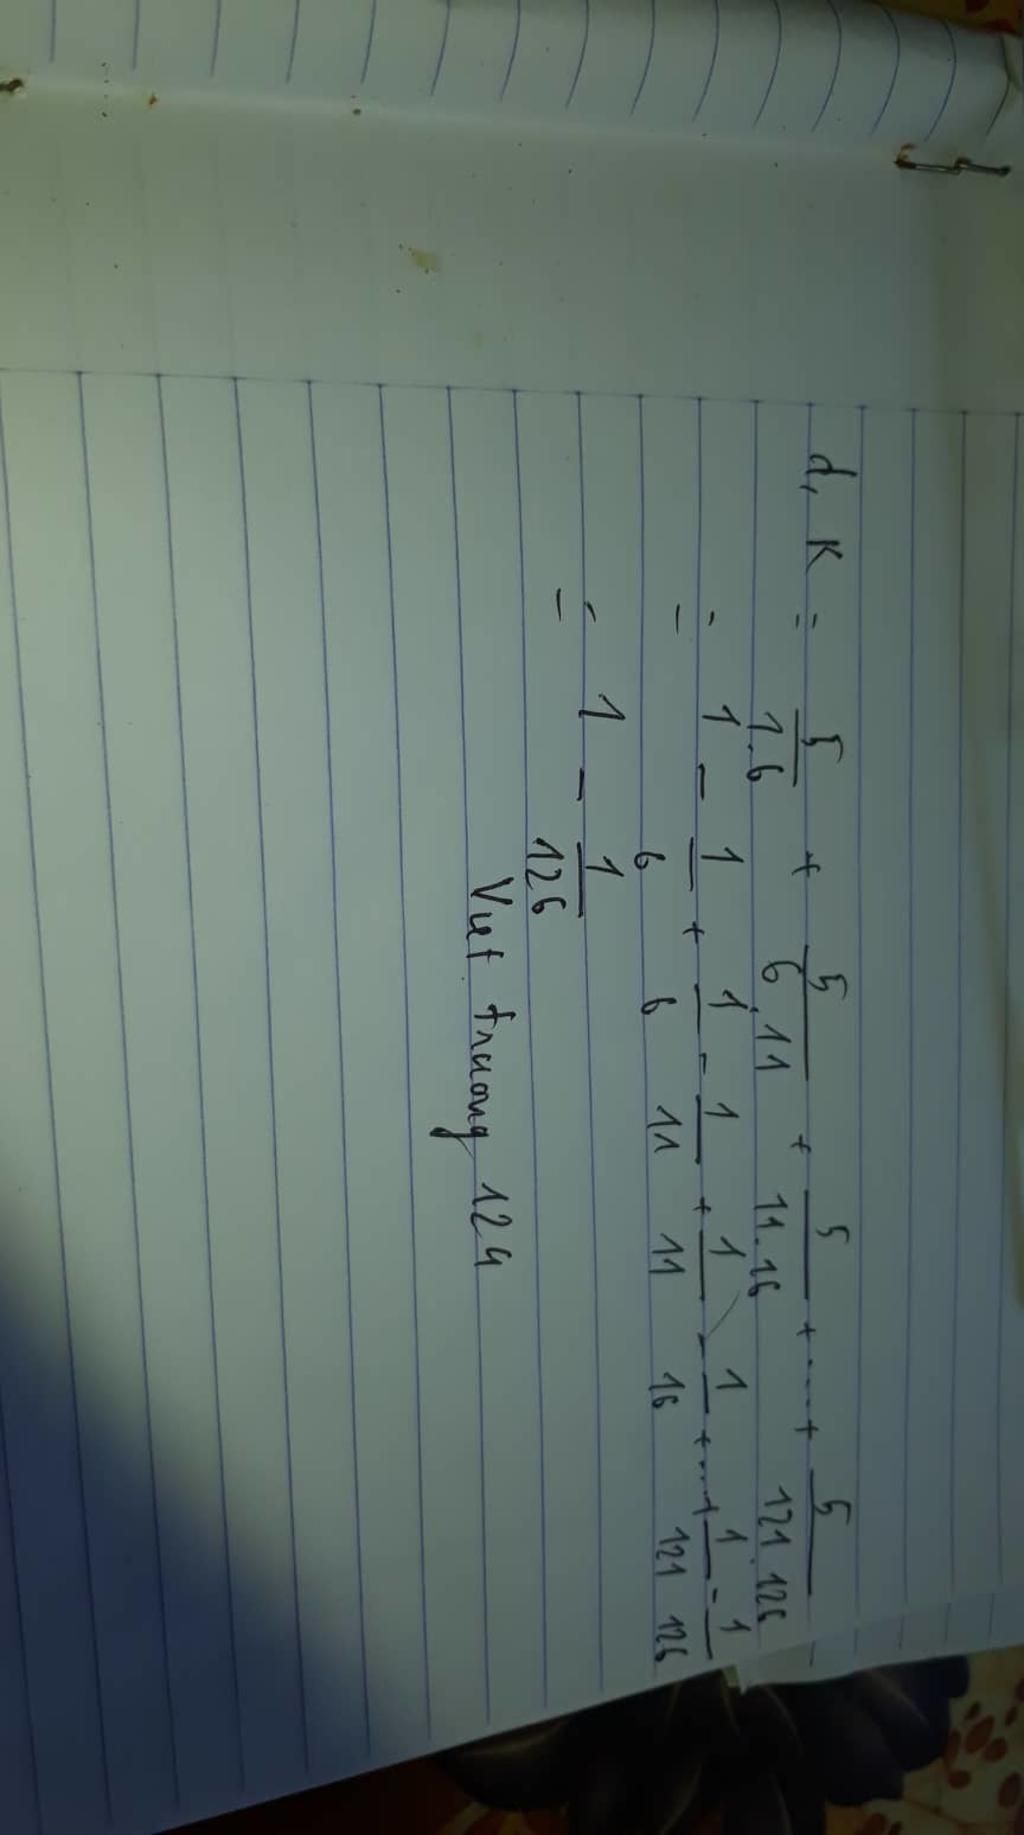 d, K = 5/1.6 + 5/6.11 + 5/11.16 + .... + 5/121.126
= 1 - 1/6 + 1/6 - 1/11 + 1/11 - 1/16 + ... + 1/121 - 1/126
= 1 - 1/126
Viettruong124